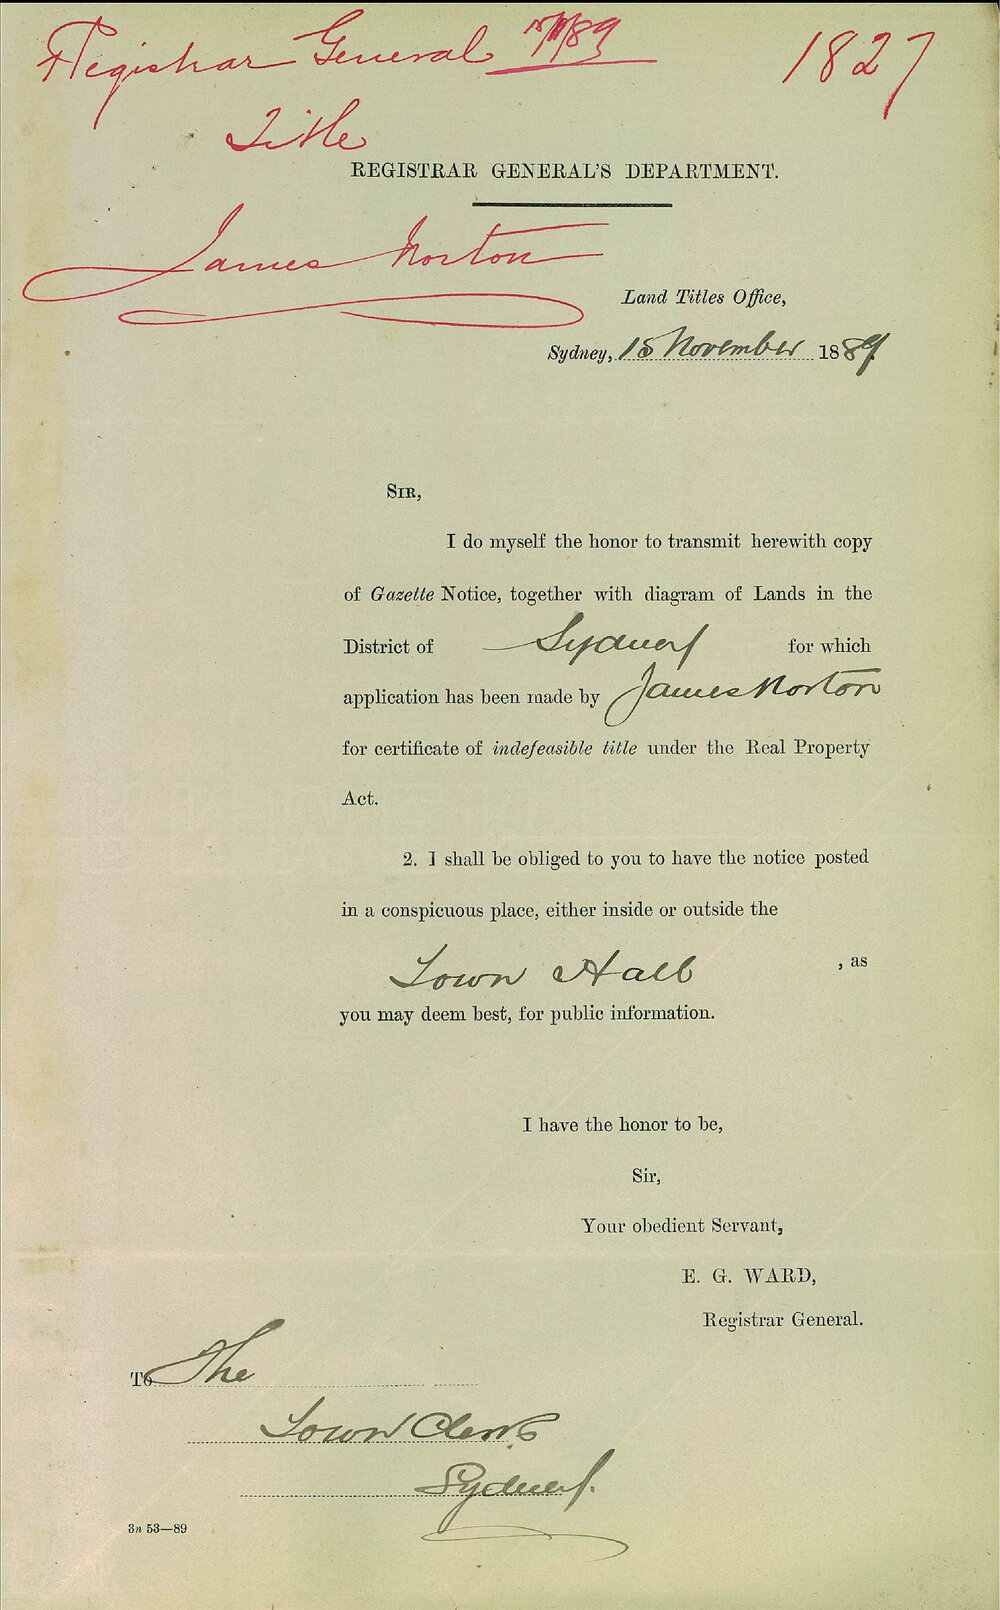 Registrar General 15/11/89
1827
Title
REGISTRAR GENERAL'S DEPARTMENT.
James Norton
Land Titles Office,
Sydney, 15 November 1889.
SIR,
I do myself the honor to transmit herewith copy
of Gazette Notice, together with diagram of Lands in the
District of Sydney for which
application has been made by James Norton
for certificate of indefeasible title under the Real Property
Act.
2. I shall be obliged to you to have the notice posted
in a conspicuous place, either inside or outside the
Town Hall , as
you may deem best, for public information.
I have the honor to be,
Sir,
Your obedient Servant,
E. G. WARD,
Registrar General.
To The
Town Clerk
Sydney.
3n 53—89